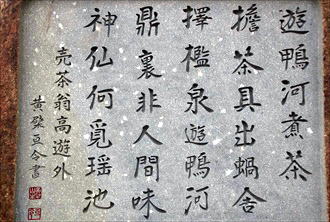 遊鴨河煮茶
擔茶具出蝸舍
擇檻泉遊鴨河
鼎裏非人間味
神仙何覓瑶池
売茶翁高遊外
黄檗亘令書